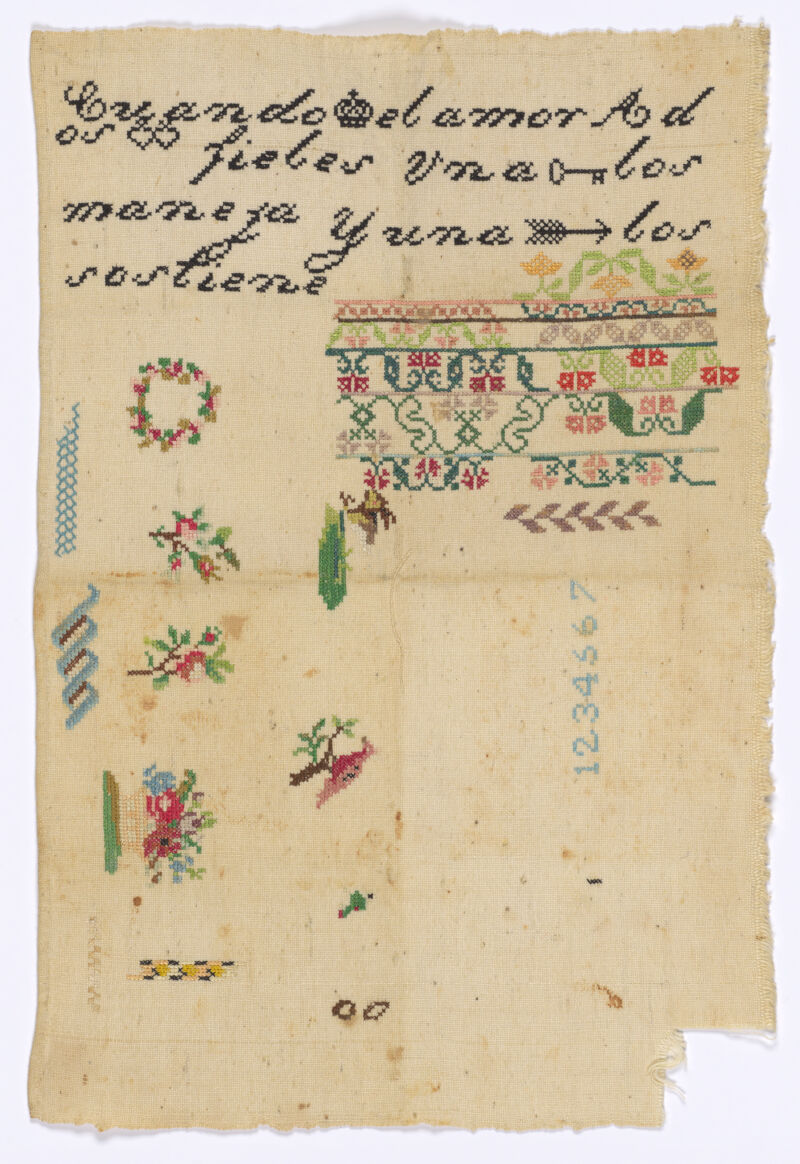 Cuando el amor Ad
os fieles Vna los
maneja Y una los
sostiene
1234567
oo